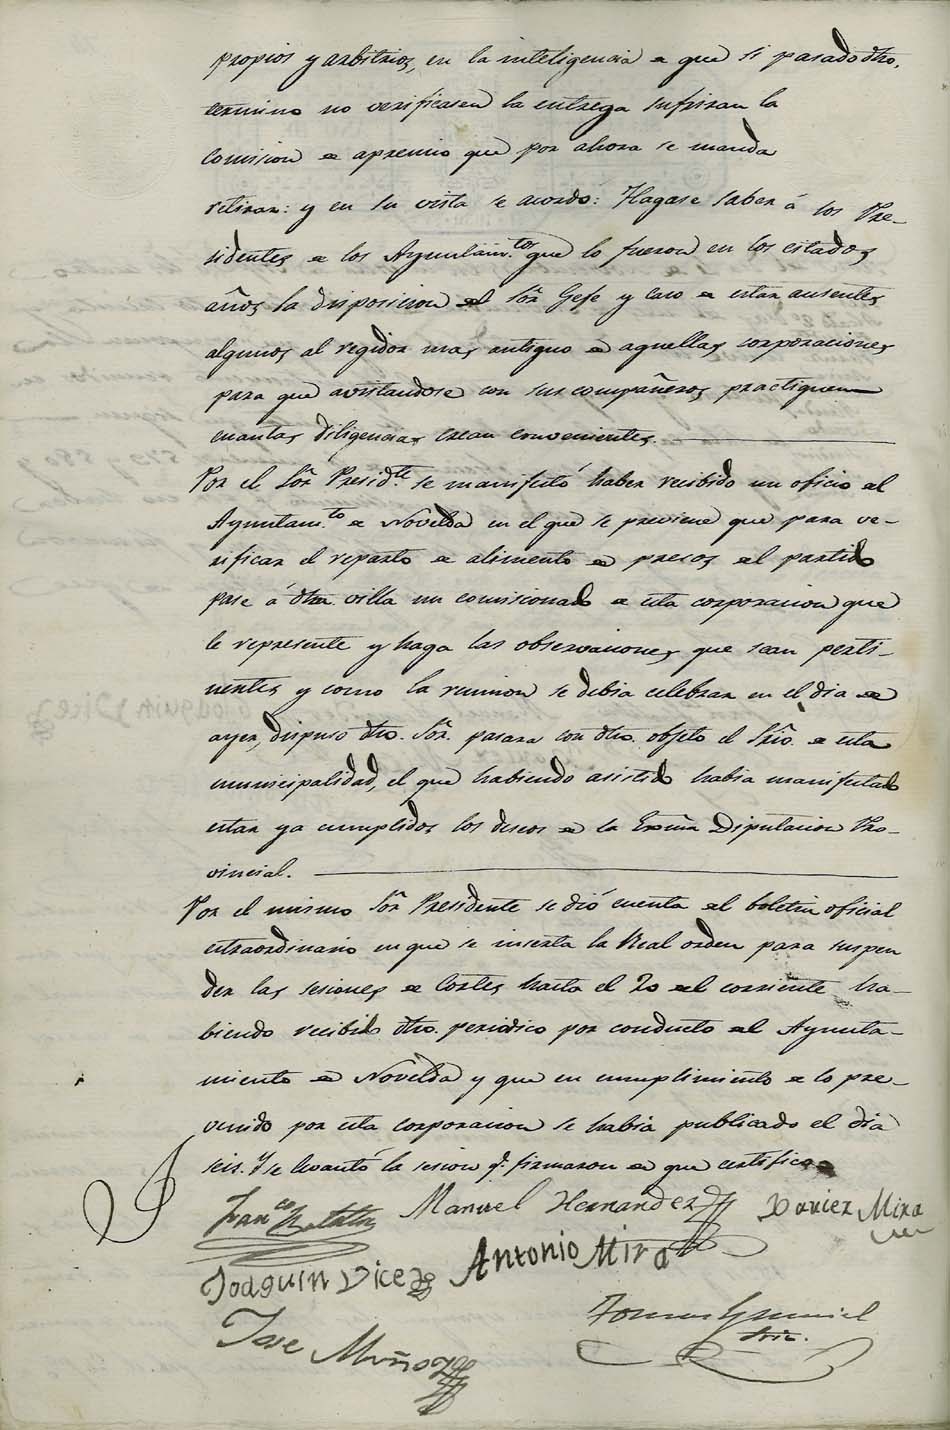 propios y arbitrios, en la inteligencia de que si pasado dho.
termino no verificasen la entrega sufriran la
comision de apremio que por ahora se manda
retirar: y en su vista se acordó: Hagase saber á los Pre-
sidentes de los Ayuntam.tos que lo fueron en los citados
años la disposicion del Sor. Gefe y caso de estar ausentes
algunos al regidor mas antiguo de aquellas corporaciones
para que avistandose con sus compañeros practiquen
cuantas diligencias crean convenientes.
Por el Sor. Presid.te se manifestó haber recibido un oficio del
Ayuntam.to de Novelda en el que se previene que para ve-
rificar el reparto de alimento de presos del partido
pase á dha. villa un comisionado de esta corporacion que
le represente y haga las observaciones que sean perti-
nentes y como la reunion se debia celebrar en el dia de
ayer, dispuso dho. Sor. pasara con dho. objeto el Srio. de esta
municipalidad, el que habiendo asistido habia manifestado
estar ya cumplidos los deseos de la Exma. Diputacion Pro-
vincial.
Por el mismo Sor. Presidente se dió cuenta del boletin oficial
extraordinario en que se inserta la Real orden para suspen
der las sesiones de Cortes hasta el 20 del corriente ha-
biendo recibido dho. periodico por conducto del Ayunta-
miento de Novelda y que en cumplimiento de lo pre-
venido por esta corporacion se habia publicado el dia
seis. Y se levantó la sesion q.e firmaron de que certifico
Fran.co Manuel Hernandez Xavier Mira
Joaquin Vicedo Antonio Mira
Jose Muñoz Tomas
Srio.